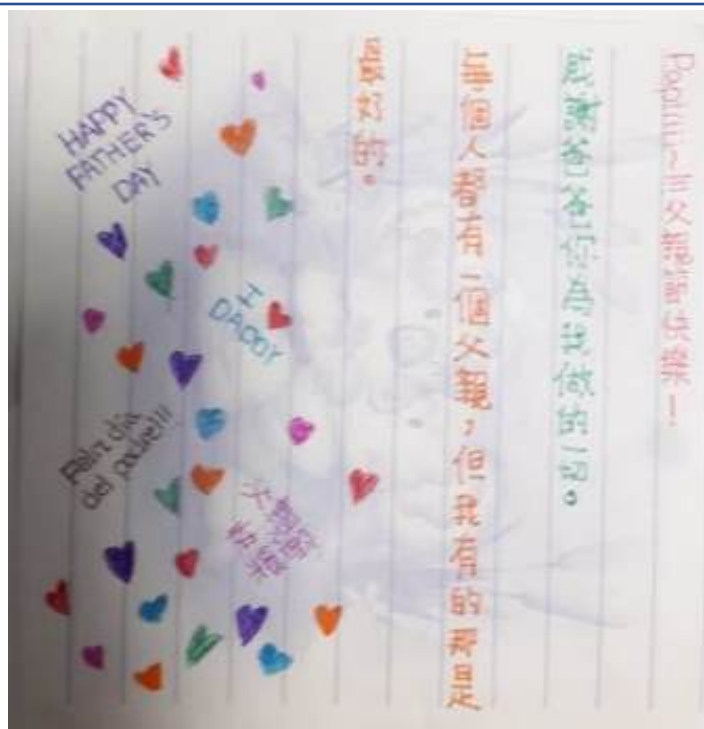 Papiii~~父親節快樂！
感謝爸爸你為我做的一切。
每個人都有一個父親，但我有的那是
最好的。
HAPPY
FATHER'S
DAY
DADDY
Feliz día
del padre!!!
父親節
快樂